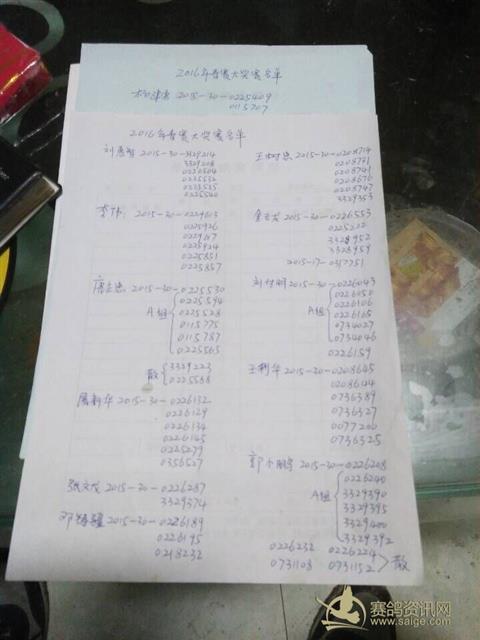 2016年春赛大奖赛名单
2015-30-0225409
0115707
2016年春赛大奖赛名单
2015-30-3329214
3329208
0220504
0225532
0225540
李 2015-30-0229613
0225926
0225924
0225851
0225857
2015-30-0225530
0225594
A组 0225528
0115775
0115787
0225565
散 3329223
0225538
2015-30-0226132
0226129
0226134
0226145
0225279
0356527
张文 2015-30-0226287
3329374
邓 2015-30-0226189
0226195
0218232
王 2015-30-0208714
0208771
0208741
0208670
0208747
3329353
金 2015-30-0226553
0225222
3328952
3328959
2015-17-0317751
刘 明 2015-30-0226043
0226050
0226106
A组 0226105
0734027
0734046
0226159
王利华 2015-30-0208645
0208644
0736389
0736327
0077200
0736325
郭小 2015-30-0226208
0226240
A组 3329390
3329395
3329400
3329392
0226232 0226224
0731108 0731152 散
赛鸽资讯网
www.saige.com